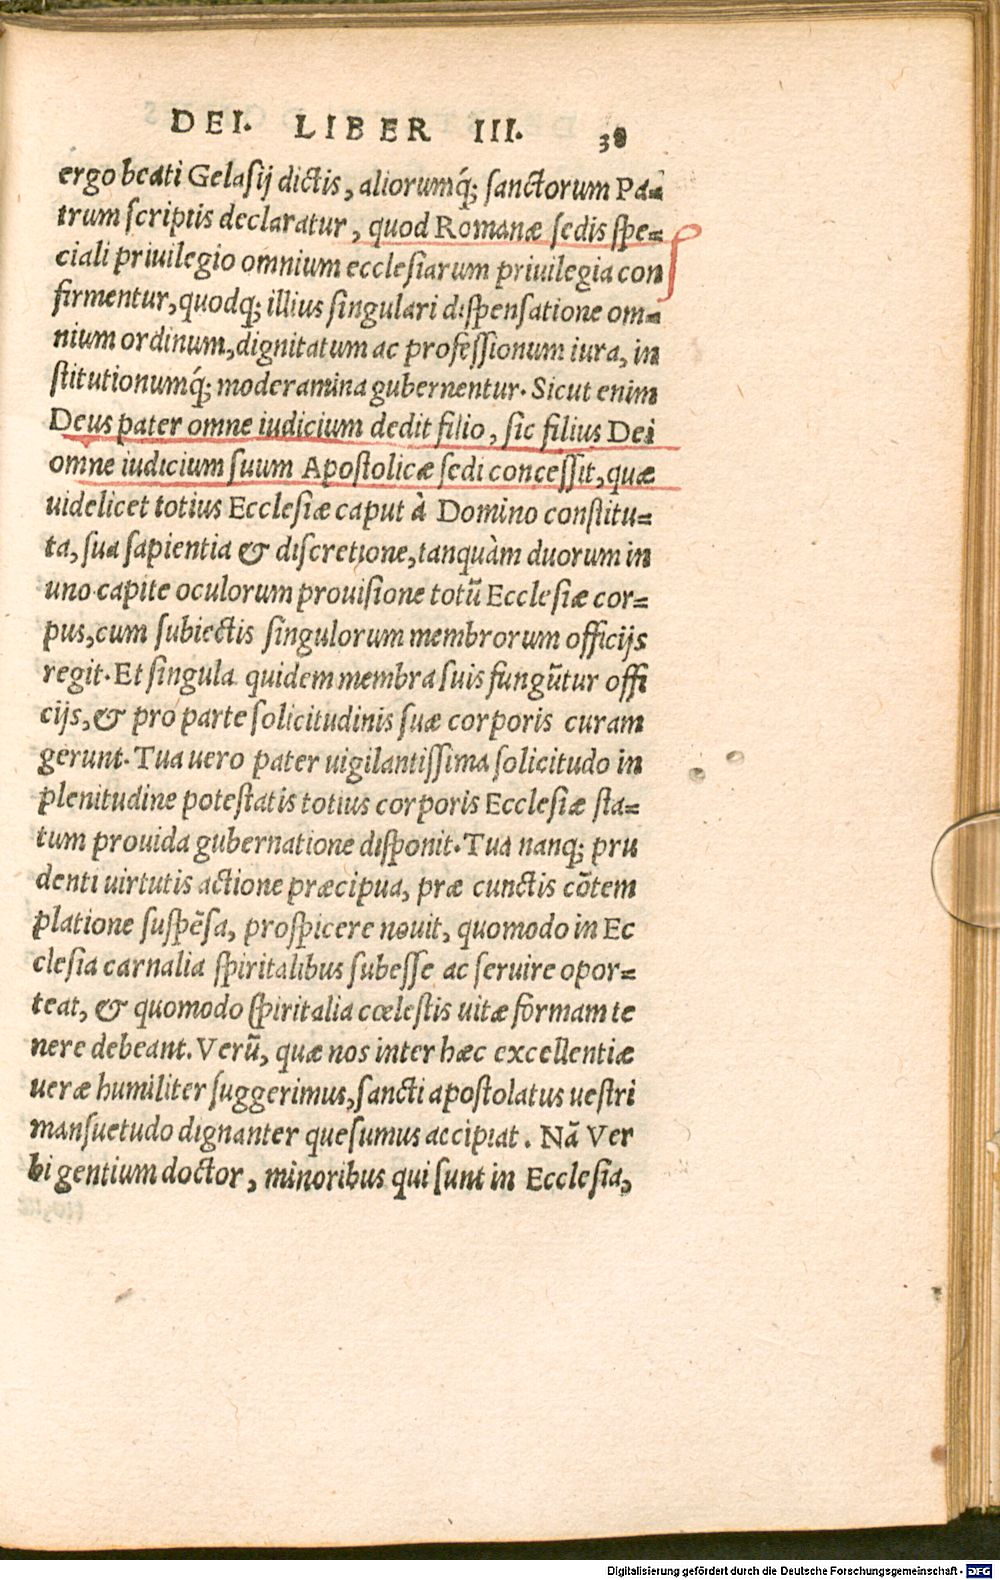 DEI. LIBER III. 38
ergo beati Gelasij dictis, aliorumq́; sanctorum Pa=
trum scriptis declaratur, quod Romanæ sedis spe=
ciali priuilegio omnium ecclesiarum priuilegia con
firmentur, quodq; illius singulari dispensatione om=
nium ordinum, dignitatum ac professionum iura, in
stitutionumq́; moderamina gubernentur. Sicut enim
Deus pater omne iudicium dedit filio, sic filius Dei
omne iudicium suum Apostolicæ sedi concessit, quæ
uidelicet totius Ecclesiæ caput à Domino constitu=
ta, sua sapientia & discretione, tanquàm duorum in
uno capite oculorum prouisione totũ Ecclesiæ cor=
pus, cum subiectis singulorum membrorum officijs
regit. Et singula quidem membra suis fungũtur offi
cijs, & pro parte solicitudinis suæ corporis curam
gerunt. Tua uero pater uigilantissima solicitudo in
plenitudine potestatis totius corporis Ecclesiæ sta=
tum prouida gubernatione disponit. Tua nanq; pru
denti uirtutis actione præcipua, præ cunctis cõtem
platione suspẽsa, prospicere nouit, quomodo in Ec
clesia carnalia spiritalibus subesse ac seruire opor=
teat, & quomodo spiritalia cœlestis uitæ formam te
nere debeant. Verũ, quæ nos inter hæc excellentiæ
ueræ humiliter suggerimus, sancti apostolatus uestri
mansuetudo dignanter quesumus accipiat. Nã Ver
bi gentium doctor, minoribus qui sunt in Ecclesia,
Digitalisierung gefördert durch die Deutsche Forschungsgemeinschaft - DFG